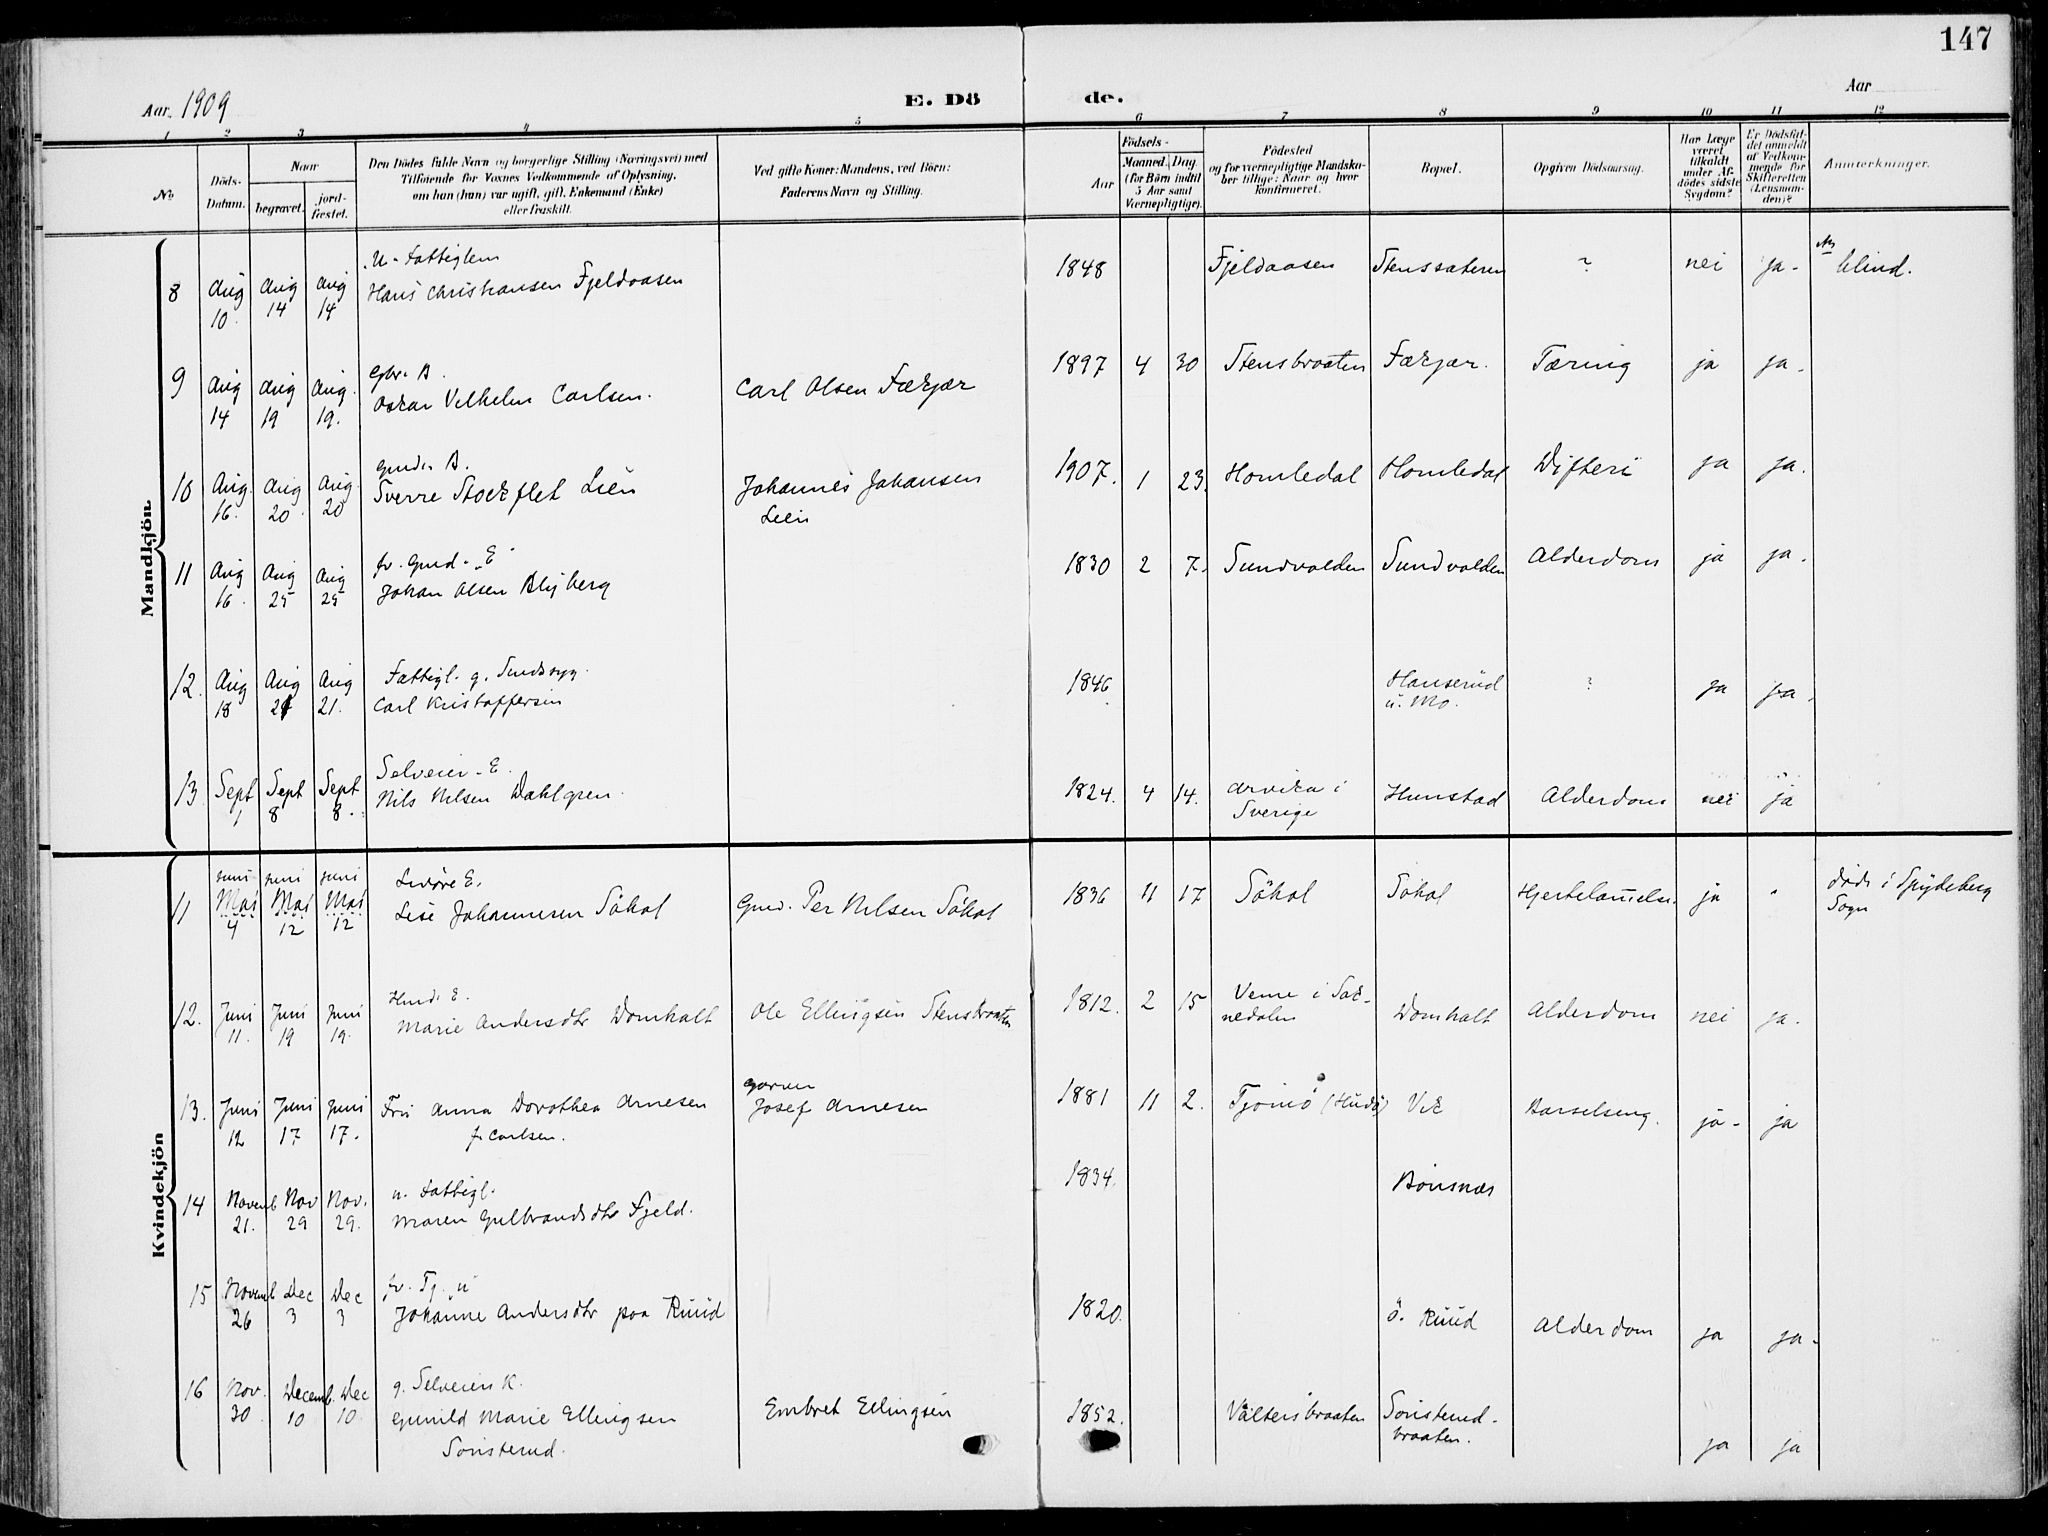 147
Aar 1909
E. Döde.
Aar
1 2 3 4 5 6 7 8 9 10 11 12
No
Döds-Datum.
Naar
begravet.
jord-fæstet.
Den Dödes fulde Navn og borgerlige Stilling (Næringsvei) med
Tilföiende for Voxnes Vedkommende af Oplysning,
om han (hun) var ugift, gift, Enkemand (Enke)
eller fraskilt.
Ved gifte Koner: Mandens, ved Börn:
Faderens Navn og Stilling.
Födsels-
Aar
Maaned. Dag
(for Börn indtil
5 Aar samt
Værnepligtige).
Födested
og for værnepligtige Mandska-
ber tillige: Naar og hvor
konfirmeret.
Bopæl.
Opgiven Dödsaarsag.
Har Læge
været
tilkaldt
under Af-
dödes sidste
Sygdom?
Er Dödsfal-
det anmeldt
af Vedkom-
mende for
Skifteretten
(Lensman-
den)?
Anmerkninger.
Mandkjön.
8 Aug 10. Aug 14 Aug 14
U. Fattiglem
Hans Christiansen Fjeldaasen
1848 Fjeldaasen Stenssæteren ? nei ja. blind.
9 Aug 14 Aug 19 Aug. 19.
Gbr. B.
Oskar Vilhelm Carlsen. Carl Olsen Fækjær
1897 4 30 Stensbraaten Fækjær. Tæring ja ja.
10 Aug. 16. Aug 20. Aug. 20
Gmd. B.
Sverre Stockflet Lien Johannes Johansen
Lien
1907. 1 23. Homledal Homledal Difteri ja ja.
11 Aug 16. Aug 25 Aug 25
fv. Gmd. E
Johan Olsen Blyberg
1830 2 7. Sundvolden Sundvolden Alderdom ja ja.
12. Aug 18 Aug 21 Aug 21.
Fattigl. g. Sindssyg.
Carl Kristoffersen
1846. Hanserud
u. Mo. ? ja ja.
13 Sept 1 Sept 8 Sept 8.
Selveier. E.
Nils Nilsen Dahlgren.
1824. 4 14. Arvika i
Sverige Hunstad Alderdom nei ja
Kvindekjön
11 juni Mai 4 juni Mai 12 juni Mai 12
E.
Lise Johannesen Såhol Gmd. Per Nilsen Såhol
1836 11 17 Såhol Såhol Hjertelammelse. ja "
döde i Spydeberg
Sogn
12. Juni 11. Juni 19 Juni 19.
Hmd. E.
Marie Andersdtr Domholt Ole Ellingsen Stensbraaten
1812. 2 15 Veme i Sok-
nedalen Domholt Alderdom nei ja.
13. Juni 12 Juni 17 Juni 17.
Fru Anna Dorothea Arnesen
f. Carlsen.
Garver
Josef Arnesen
1881 11 2. Tjömö (Hudö) Vik Barselseng. ja. ja
14 Novemb 21. Nov 29 Nov. 29.
u. Fattigl.
Maren Gulbrandsdtr Fjeld.
1834. Bönsnæs
15 Novemb 26 Dec 3 Dec 3
fv. Tj. u
Johanne Andersdtr paa Ruud
1820. ö. Ruud Alderdom ja ja.
16 Nov. 30 Decemb. 10 Dec 10.
g. Selveiers K.
Gunild Marie Ellingsen
Sonsterud. Embret Ellingsen
1852. Vältersbraaten Sonsterud-
braaten. ja ja